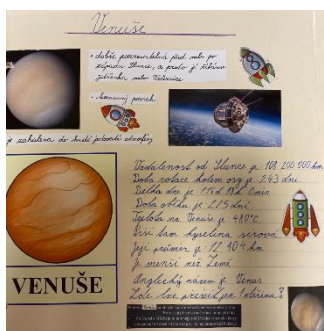 Venuše
• dobře pozorovatelná před nebo po
západu Slunce, a proto jí říkáme
jitřenka nebo Večernice
• kamenný povrch
je zahalena do husté jedovaté atmosféry
Vzdálenost od Slunce je 108 200 000 km
Doba rotace kolem osy je 243 dní
Délka dne je 116d 18h 0min
Doba oběhu je 225 dní
Teplota na Venuši je 480°C
Prší tam kyselina sírová
Její průměr je 12 104 km
Je menší než Země
Anglický název je Venus
VENUŠE